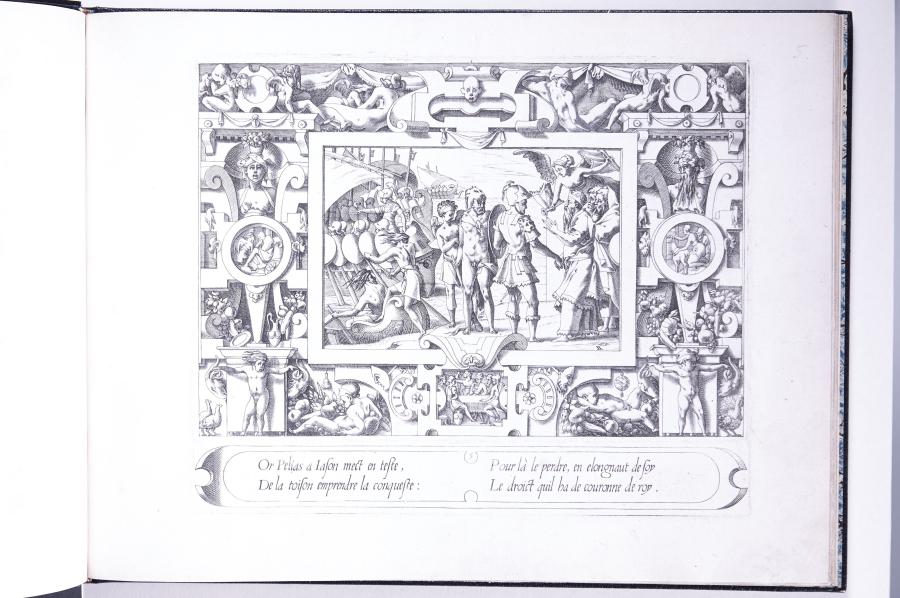 5
(5)
Or Pelias a Iason mect en teste,
De la toison emprendre la conqueste :
Pour là le perdre, en elongnaut de soy
Le droict quil ha de couronne de roy.